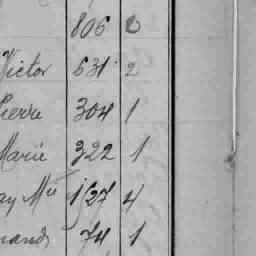 806 6
Victor 631 2
Pierre 304 1
Marie 322 1
ay Mll 1527 4
nand 74 1